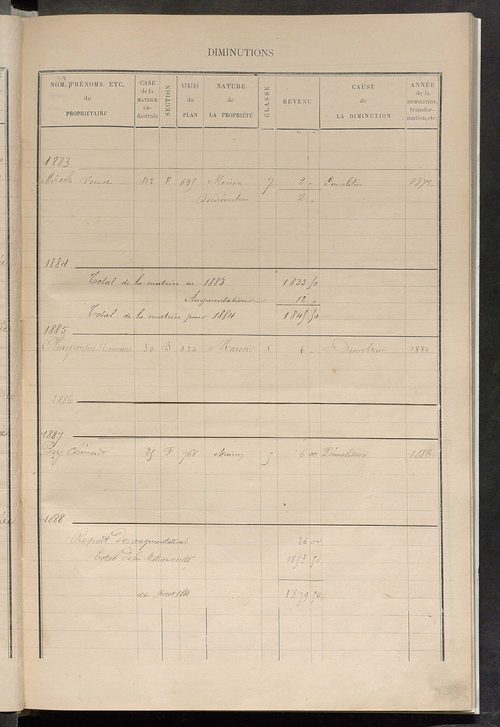 DIMINUTIONS
NOM, PRÉNOMS, ETC. du PROPRIÉTAIRE
CASE de la MATRICE ca- dastrale
SECTION
NUMÉRO du PLAN
NATURE de LA PROPRIÉTÉ
CLASSE
REVENU
CAUSE de LA DIMINUTION
ANNÉE de la DÉMOLITION, transfor- mation, etc.
1883
Veuve 112 F 695 Maison 7 2 " Démolition
Diminution 2 "
1884
Total de la matrice en 1883 1833 50
Augmentations 12 "
Total de la matrice pour 1884 1845 50
1885
Charpentier 50 B 524 Maison 5 6 " Démolition 1884
1886
1887
Clément 25 F 768 Maison 5 6 00 Démolition 1886
1888
Report des augmentations 26 00
Total de la Matrice 1852 50
pour 1879 50